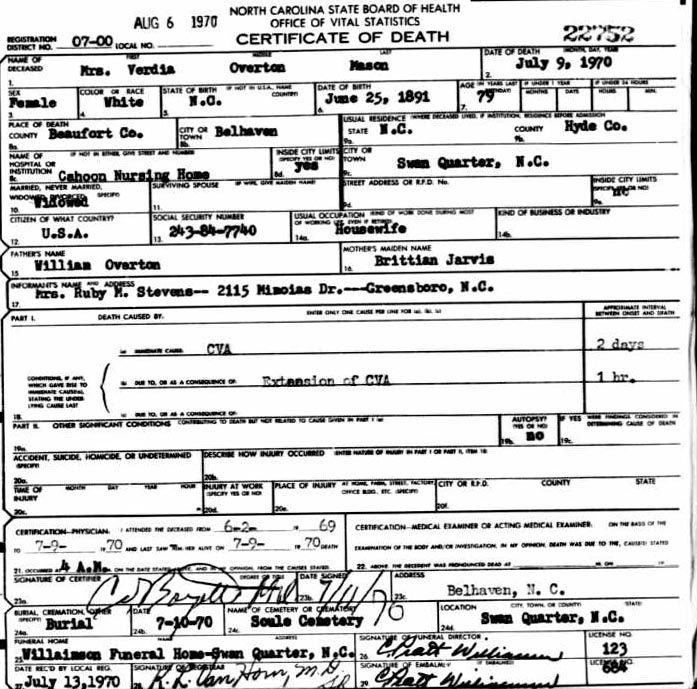 NORTH CAROLINA STATE BOARD OF HEALTH
AUG 6 1970 OFFICE OF VITAL STATISTICS
REGISTRATION DISTRICT NO. 07-00 LOCAL NO. CERTIFICATE OF DEATH 22752
NAME OF DECEASED FIRST MIDDLE LAST DATE OF DEATH (MONTH, DAY, YEAR)
1. Mrs. Verdia Overton Mason 2. July 9, 1970
SEX COLOR OR RACE STATE OF BIRTH (IF NOT IN U.S.A., NAME COUNTRY) DATE OF BIRTH AGE (IN YEARS LAST BIRTHDAY) IF UNDER 1 YEAR IF UNDER 24 HOURS
MONTHS DAYS HOURS MIN.
3. Female 4. White 5. N.C. 6. June 25, 1891 7. 79
PLACE OF DEATH USUAL RESIDENCE (WHERE DECEASED LIVED, IF INSTITUTION, RESIDENCE BEFORE ADMISSION)
COUNTY Beaufort Co. CITY OR TOWN Belhaven STATE N.C. COUNTY Hyde Co.
8a. 8b. 9a. 9b.
NAME OF HOSPITAL OR INSTITUTION (IF NOT IN EITHER, GIVE STREET AND NUMBER) INSIDE CITY LIMITS (SPECIFY YES OR NO) CITY OR TOWN
8c. Cahoon Nursing Home 8d. yes 9c. Swan Quarter, N.C.
MARRIED, NEVER MARRIED, WIDOWED, DIVORCED (SPECIFY) SURVIVING SPOUSE (IF WIFE, GIVE MAIDEN NAME) STREET ADDRESS OR R.F.D. NO. INSIDE CITY LIMITS (SPECIFY YES OR NO)
10. Widowed 11. 9d. 9e.
CITIZEN OF WHAT COUNTRY? SOCIAL SECURITY NUMBER USUAL OCCUPATION (KIND OF WORK DONE DURING MOST OF WORKING LIFE, EVEN IF RETIRED) KIND OF BUSINESS OR INDUSTRY
12. U.S.A. 13. 243-84-7740 14a. Housewife 14b.
FATHER'S NAME MOTHER'S MAIDEN NAME
15. William Overton 16. Brittian Jarvis
INFORMANT'S NAME AND ADDRESS
17. Mrs. Ruby M. Stevens-- 2115 Mimoias Dr.---Greensboro, N.C.
PART I. DEATH CAUSED BY: ENTER ONLY ONE CAUSE PER LINE FOR (a), (b), (c) APPROXIMATE INTERVAL BETWEEN ONSET AND DEATH
(a) IMMEDIATE CAUSE CVA 2 days
CONDITIONS, IF ANY, WHICH GAVE RISE TO IMMEDIATE CAUSE(a), STATING THE UNDERLYING CAUSE LAST
(b) DUE TO, OR AS A CONSEQUENCE OF: Extension of CVA 1 hr.
18. (c) DUE TO, OR AS A CONSEQUENCE OF:
PART II. OTHER SIGNIFICANT CONDITIONS CONTRIBUTING TO DEATH BUT NOT RELATED TO CAUSE GIVEN IN PART I (a) AUTOPSY? (YES OR NO) IF YES WERE FINDINGS CONSIDERED IN DETERMINING CAUSE OF DEATH
19a. 19b. no 19c.
ACCIDENT, SUICIDE, HOMICIDE, OR UNDETERMINED (SPECIFY) DESCRIBE HOW INJURY OCCURRED (ENTER NATURE OF INJURY IN PART I OR PART II, ITEM 18)
20a. 20b.
TIME OF INJURY MONTH DAY YEAR HOUR INJURY AT WORK (SPECIFY YES OR NO) PLACE OF INJURY AT HOME, FARM, STREET, FACTORY, OFFICE BLDG., ETC. (SPECIFY) CITY OR R.F.D. COUNTY STATE
20c. 20d. 20e. 20f.
CERTIFICATION-PHYSICIAN: I ATTENDED THE DECEASED FROM 6-2- 19 69 CERTIFICATION-MEDICAL EXAMINER OR ACTING MEDICAL EXAMINER: ON THE BASIS OF THE
TO 7-9- 1970 AND LAST SAW HIM/HER ALIVE ON 7-9- 1970 DEATH EXAMINATION OF THE BODY AND/OR INVESTIGATION, IN MY OPINION, DEATH WAS DUE TO THE CAUSE(S) STATED
21. OCCURRED AT 4 A.M. ON THE DATE STATED ABOVE, AND IN MY OPINION, FROM THE CAUSES STATED 22. ABOVE. THE DECEDENT WAS PRONOUNCED DEAD AT M. ON
SIGNATURE OF CERTIFIER DEGREE OR TITLE DATE SIGNED ADDRESS
23a. 23b. 7/11/70 23c. Belhaven, N. C.
BURIAL, CREMATION, OTHER (SPECIFY) DATE NAME OF CEMETERY OR CREMATORY LOCATION CITY, TOWN, OR COUNTY) (STATE)
24a. Burial 24b. 7-10-70 24c. Soule Cemetery 24d. Swan Quarter, N.C.
FUNERAL HOME ADDRESS SIGNATURE OF FUNERAL DIRECTOR LICENSE NO.
25. Willaimson Funeral Home-Swan Quarter, N.C. 26. C. Pratt Williamson 123
DATE REC'D BY LOCAL REG. SIGNATURE OF REGISTRAR SIGNATURE OF EMBALMER (IF EMBALMED) LICENSE NO.
27. July 13, 1970 28. R. L. Van Horn, M.D. 29. C. Pratt Williamson 684